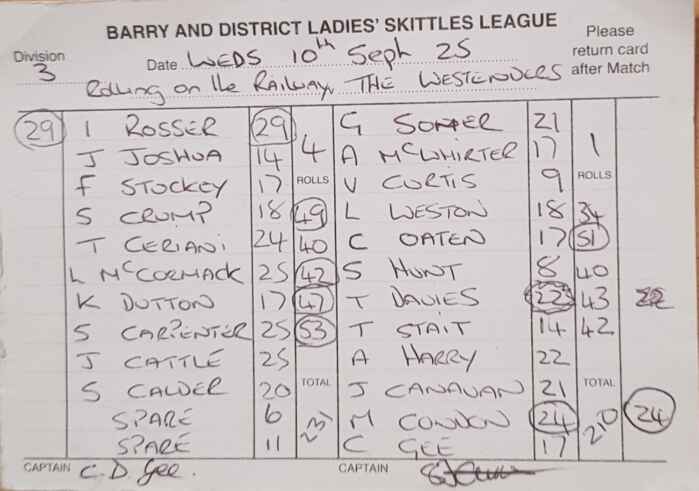 BARRY AND DISTRICT LADIES' SKITTLES LEAGUE
Division 3 Date WEDS 10th Sept 25 Please return card after Match
Rolling on the Railway, THE WESTENDERS
29 I ROSSER 29 4 G SOMMER 21 1
J JOSHUA 14 A McWHIRTER 17
F STOCKEY 17 ROLLS V CURTIS 9 ROLLS
S CRUMP 18 49 L WESTON 18 34
T CERIANI 24 40 C OATEN 17 51
L McCORMACK 25 42 S HUNT 8 40
K DUTTON 17 47 T DAVIES 22 43 22
S CARPENTER 25 53 T STAIT 14 42
J CATTLE 25 A HARRY 22
S CALDER 20 TOTAL J CANAVAN 21 TOTAL
SPARE 6 231 M CONNON 24 210 24
SPARE 11 C GEE 17
CAPTAIN C. D. Gee. CAPTAIN